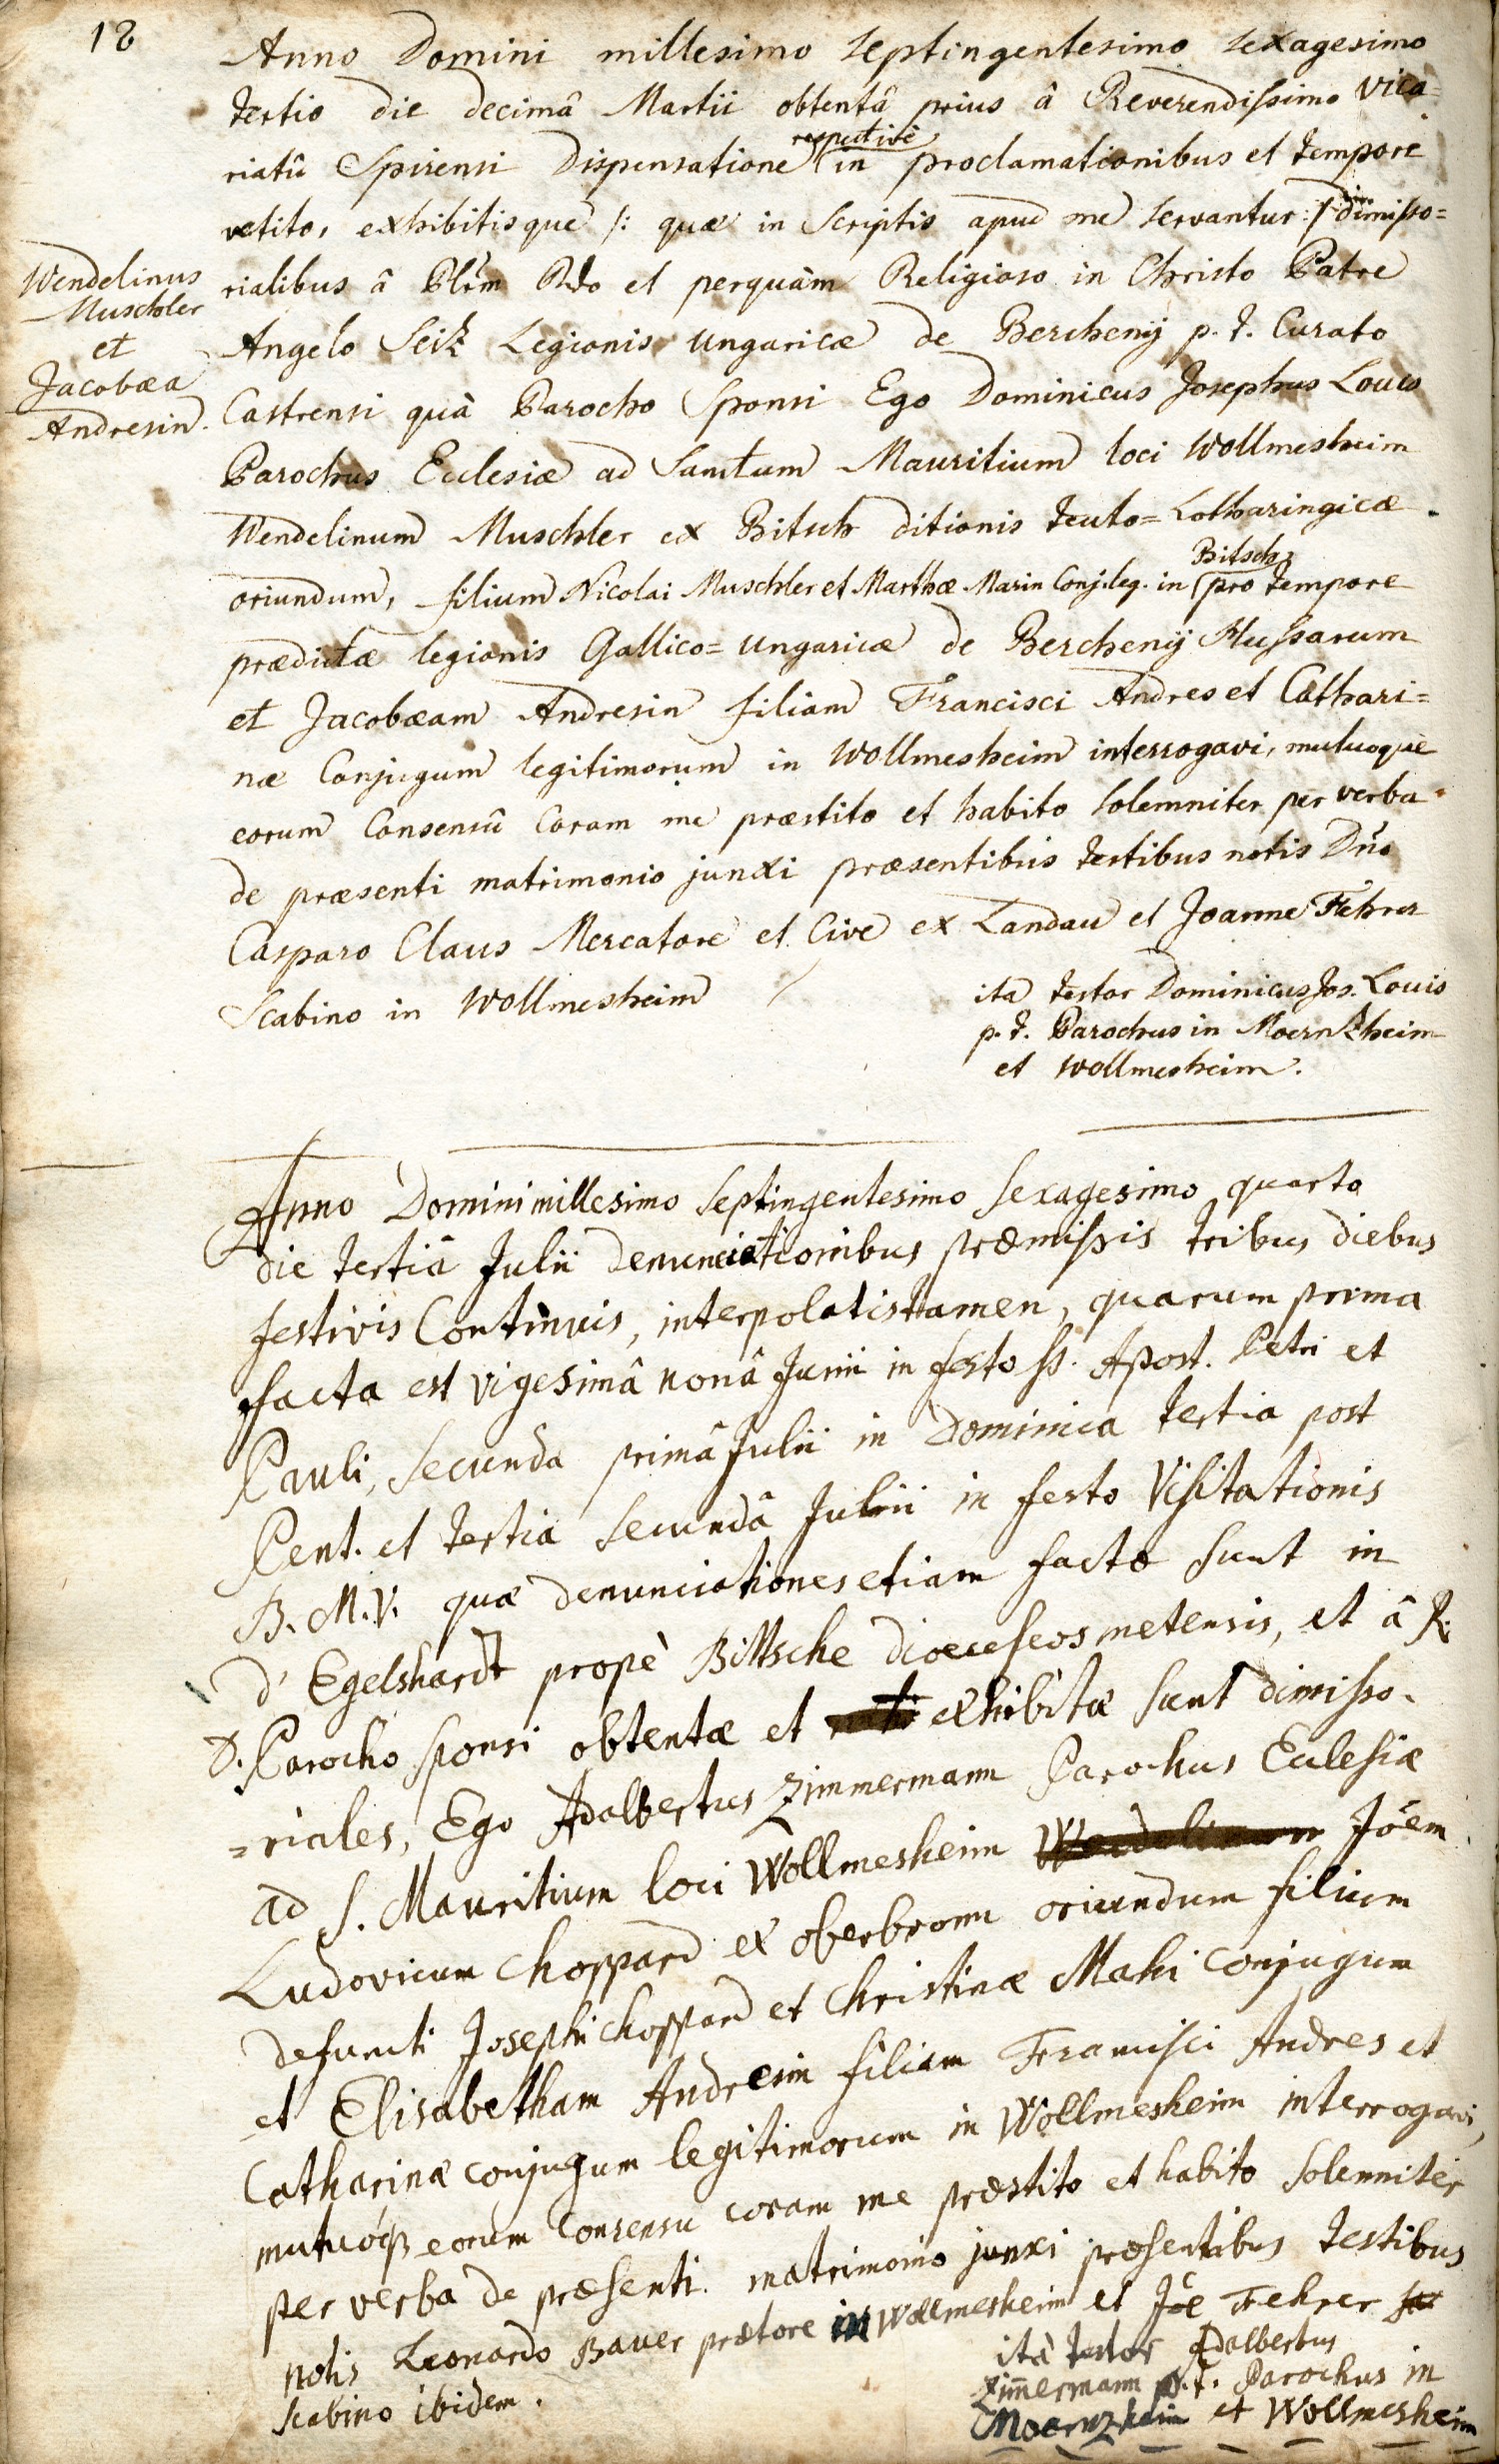 18
Anno Domini millesimo septingentesimo sexagesimo
tertio die decimâ Martii obtentâ prius â Reverendissimo Vica=
riatû Spirensi dispensatione respectivè in proclamationibus et tempore
vetito, exhibitisque /: quæ in scriptis apud me servantur :/ dimisso=
rialibus â Plrm Rdo et perquàm Religioso in Christo Patre
Angelo Seitz Legionis Ungaricæ de Berchenij p. t. Curato
Castrensi quà Parocho Sponsi Ego Dominicus Josephus Louis
Parochus Ecclesiæ ad Sanctum Mauritium loci Wollmesheim
Wendelinum Muschler ex Bitsch ditionis teuto=Lotharingicæ
oriundum, filium Nicolai Muschler et Marthæ Marin Conj. leg. in Bitsch pro tempore
prædictæ legionis Gallico=Ungaricæ de Berchenij Hussarum
et Jacobæam Andresin filiam Francisci Andres et Cathari=
næ Conjugum legitimorum in Wollmesheim interrogavi, mutuoque
eorum Consensû Coram me præstito et habito solemniter per verba
de præsenti matrimonio junxi præsentibus testibus notis Dno
Casparo Claus Mercatore et Cive ex Landau et Joanne Fehrer
Scabino in Wollmesheim
ita testor Dominicus Jos. Louis
p. t. Parochus in Moernzheim
et Wollmesheim.
Wendelinus
Muschler
et
Jacobæa
Andresin.
Anno Domini millesimo septingentesimo sexagesimo quarto
die tertiâ Julii denunciationibus præmissis tribus diebus
festivis Continuis, interpolatis tamen, quarum prima
facta est vigesimâ nonâ Junii in festo ss. Apost. Petri et
Pauli, secunda primâ Julii in Dominica tertia post
Pent. et tertia secundâ Julii in festo Visitationis
B. M. V. quæ denunciationes etiam factæ sunt in
d' Egelshardt propè Bittsche dioeceseos metensis, et â R.
D. Parocho sponsi obtentæ et exhibitæ sunt dimisso-
=riales, Ego Adalbertus Zimmermann Parochus Ecclesiæ
ad S. Mauritium loci Wollmesheim Wendelinum Joem
Ludovicum Choppard ex oberbronn oriundum filium
defuncti Josephi Choppard et Christinæ Mahi conjugum
et Elisabetham Andresin filiam Francisci Andres et
Catharinæ conjugum legitimorum in Wollmesheim interrogavi,
mutuóq3 eorum Consensu coram me præstito et habito solemniter
per verba de præsenti matrimonio junxi præsentibus testibus
notis Leonardo Bauer prætore in Wollmesheim et Joe Fehrer
scabino ibidem.
ità testor Adalbertus
Zimmermann p. t. Parochus in
Moernzheim et Wollmesheim